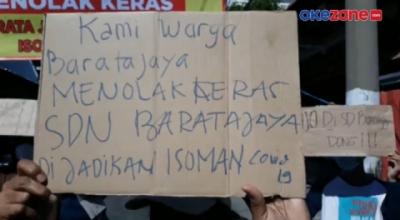 MENOLAK KERAS
OKEZONE.COM
Kami Warga
Baratajaya
MENOLAK KERAS
SDN BARATAJAYA
DI JADIKAN ISOMAN Covid
19
DONG!!!